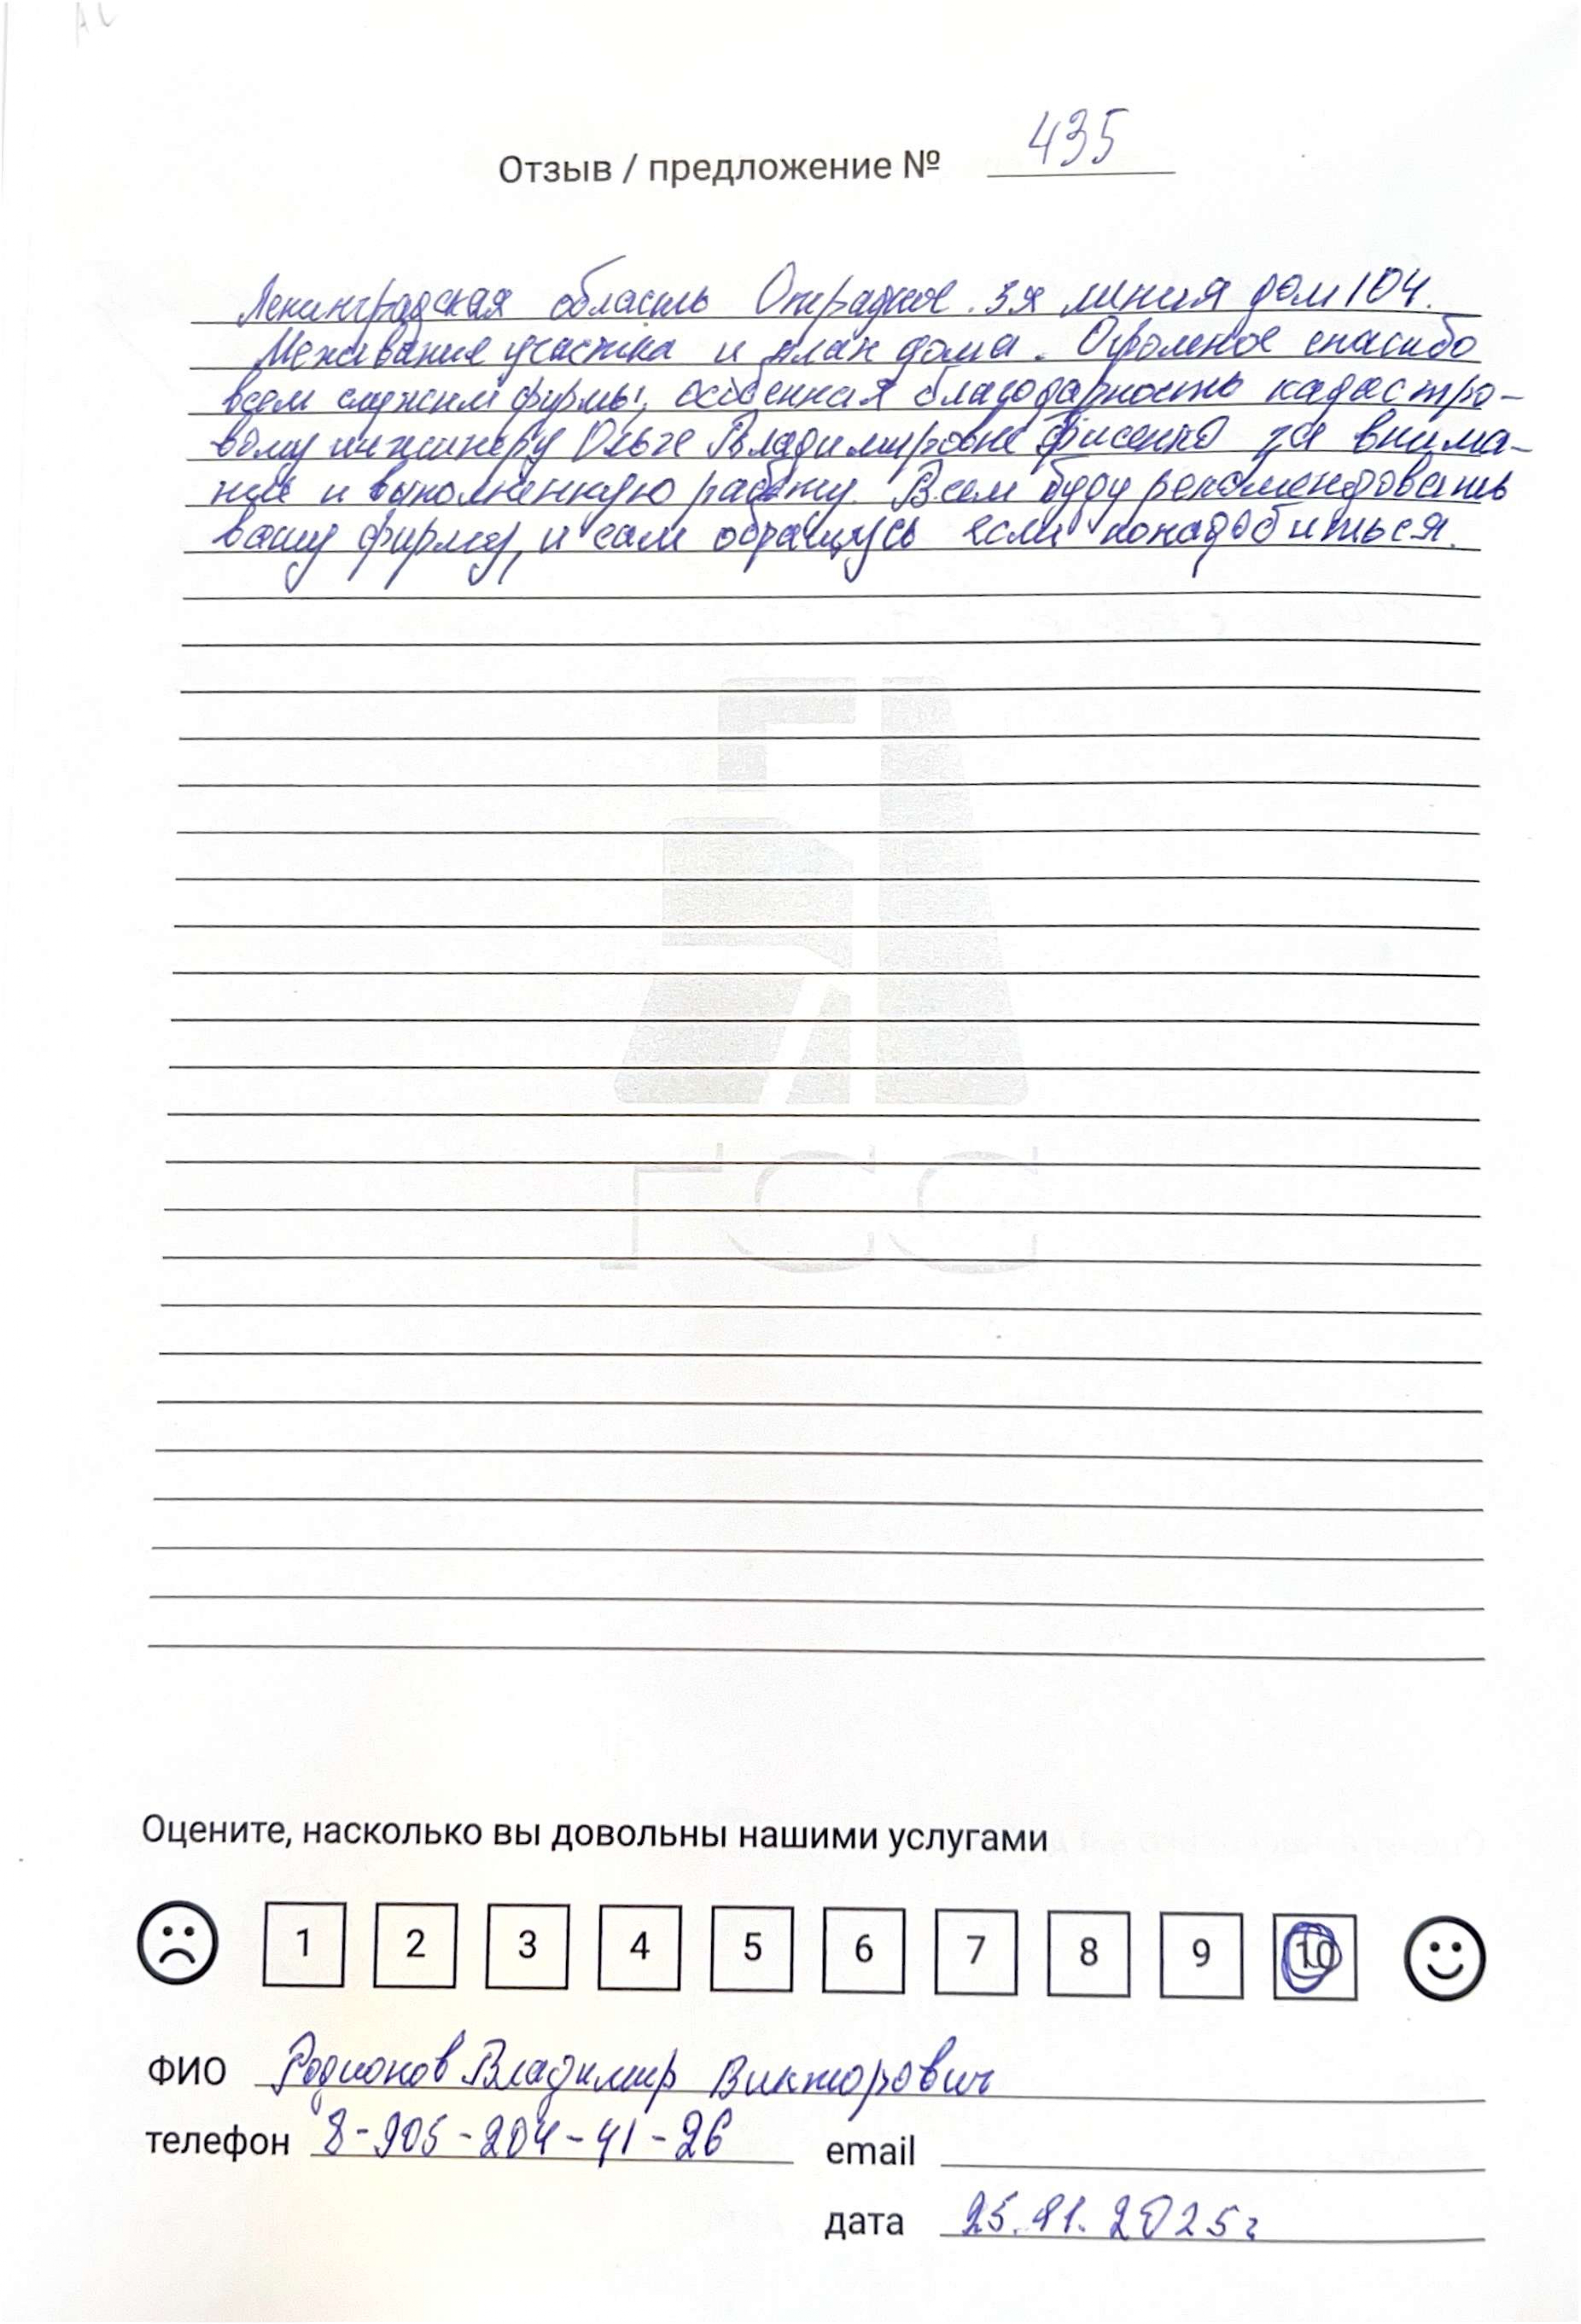 Отзыв / предложение № 435
Ленинградская область Отрадное. 3я линия дом 104.
Межевание участка и план дома. Огромное спасибо
всем служим фирмы, особенная благодарность кадастро-
вому инженеру Ольге Владимировне Фисенко за внима-
ние и выполненную работу. Всем буду рекомендовать
вашу фирму, и сам обращусь если понадобиться.
ГСС
Оцените, насколько вы довольны нашими услугами
1 2 3 4 5 6 7 8 9 10
ФИО Родионов Владимир Викторович
телефон 8-905-204-41-26 email
дата 2025г